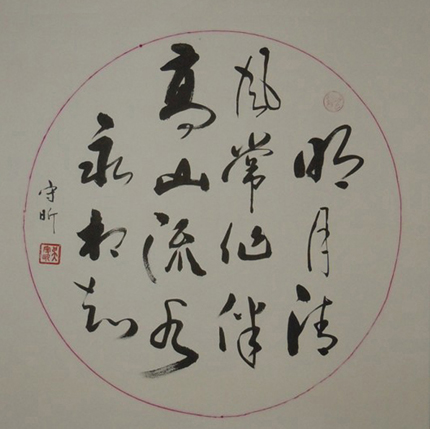 明月清
风常作伴
高山流水
永相知
守昕